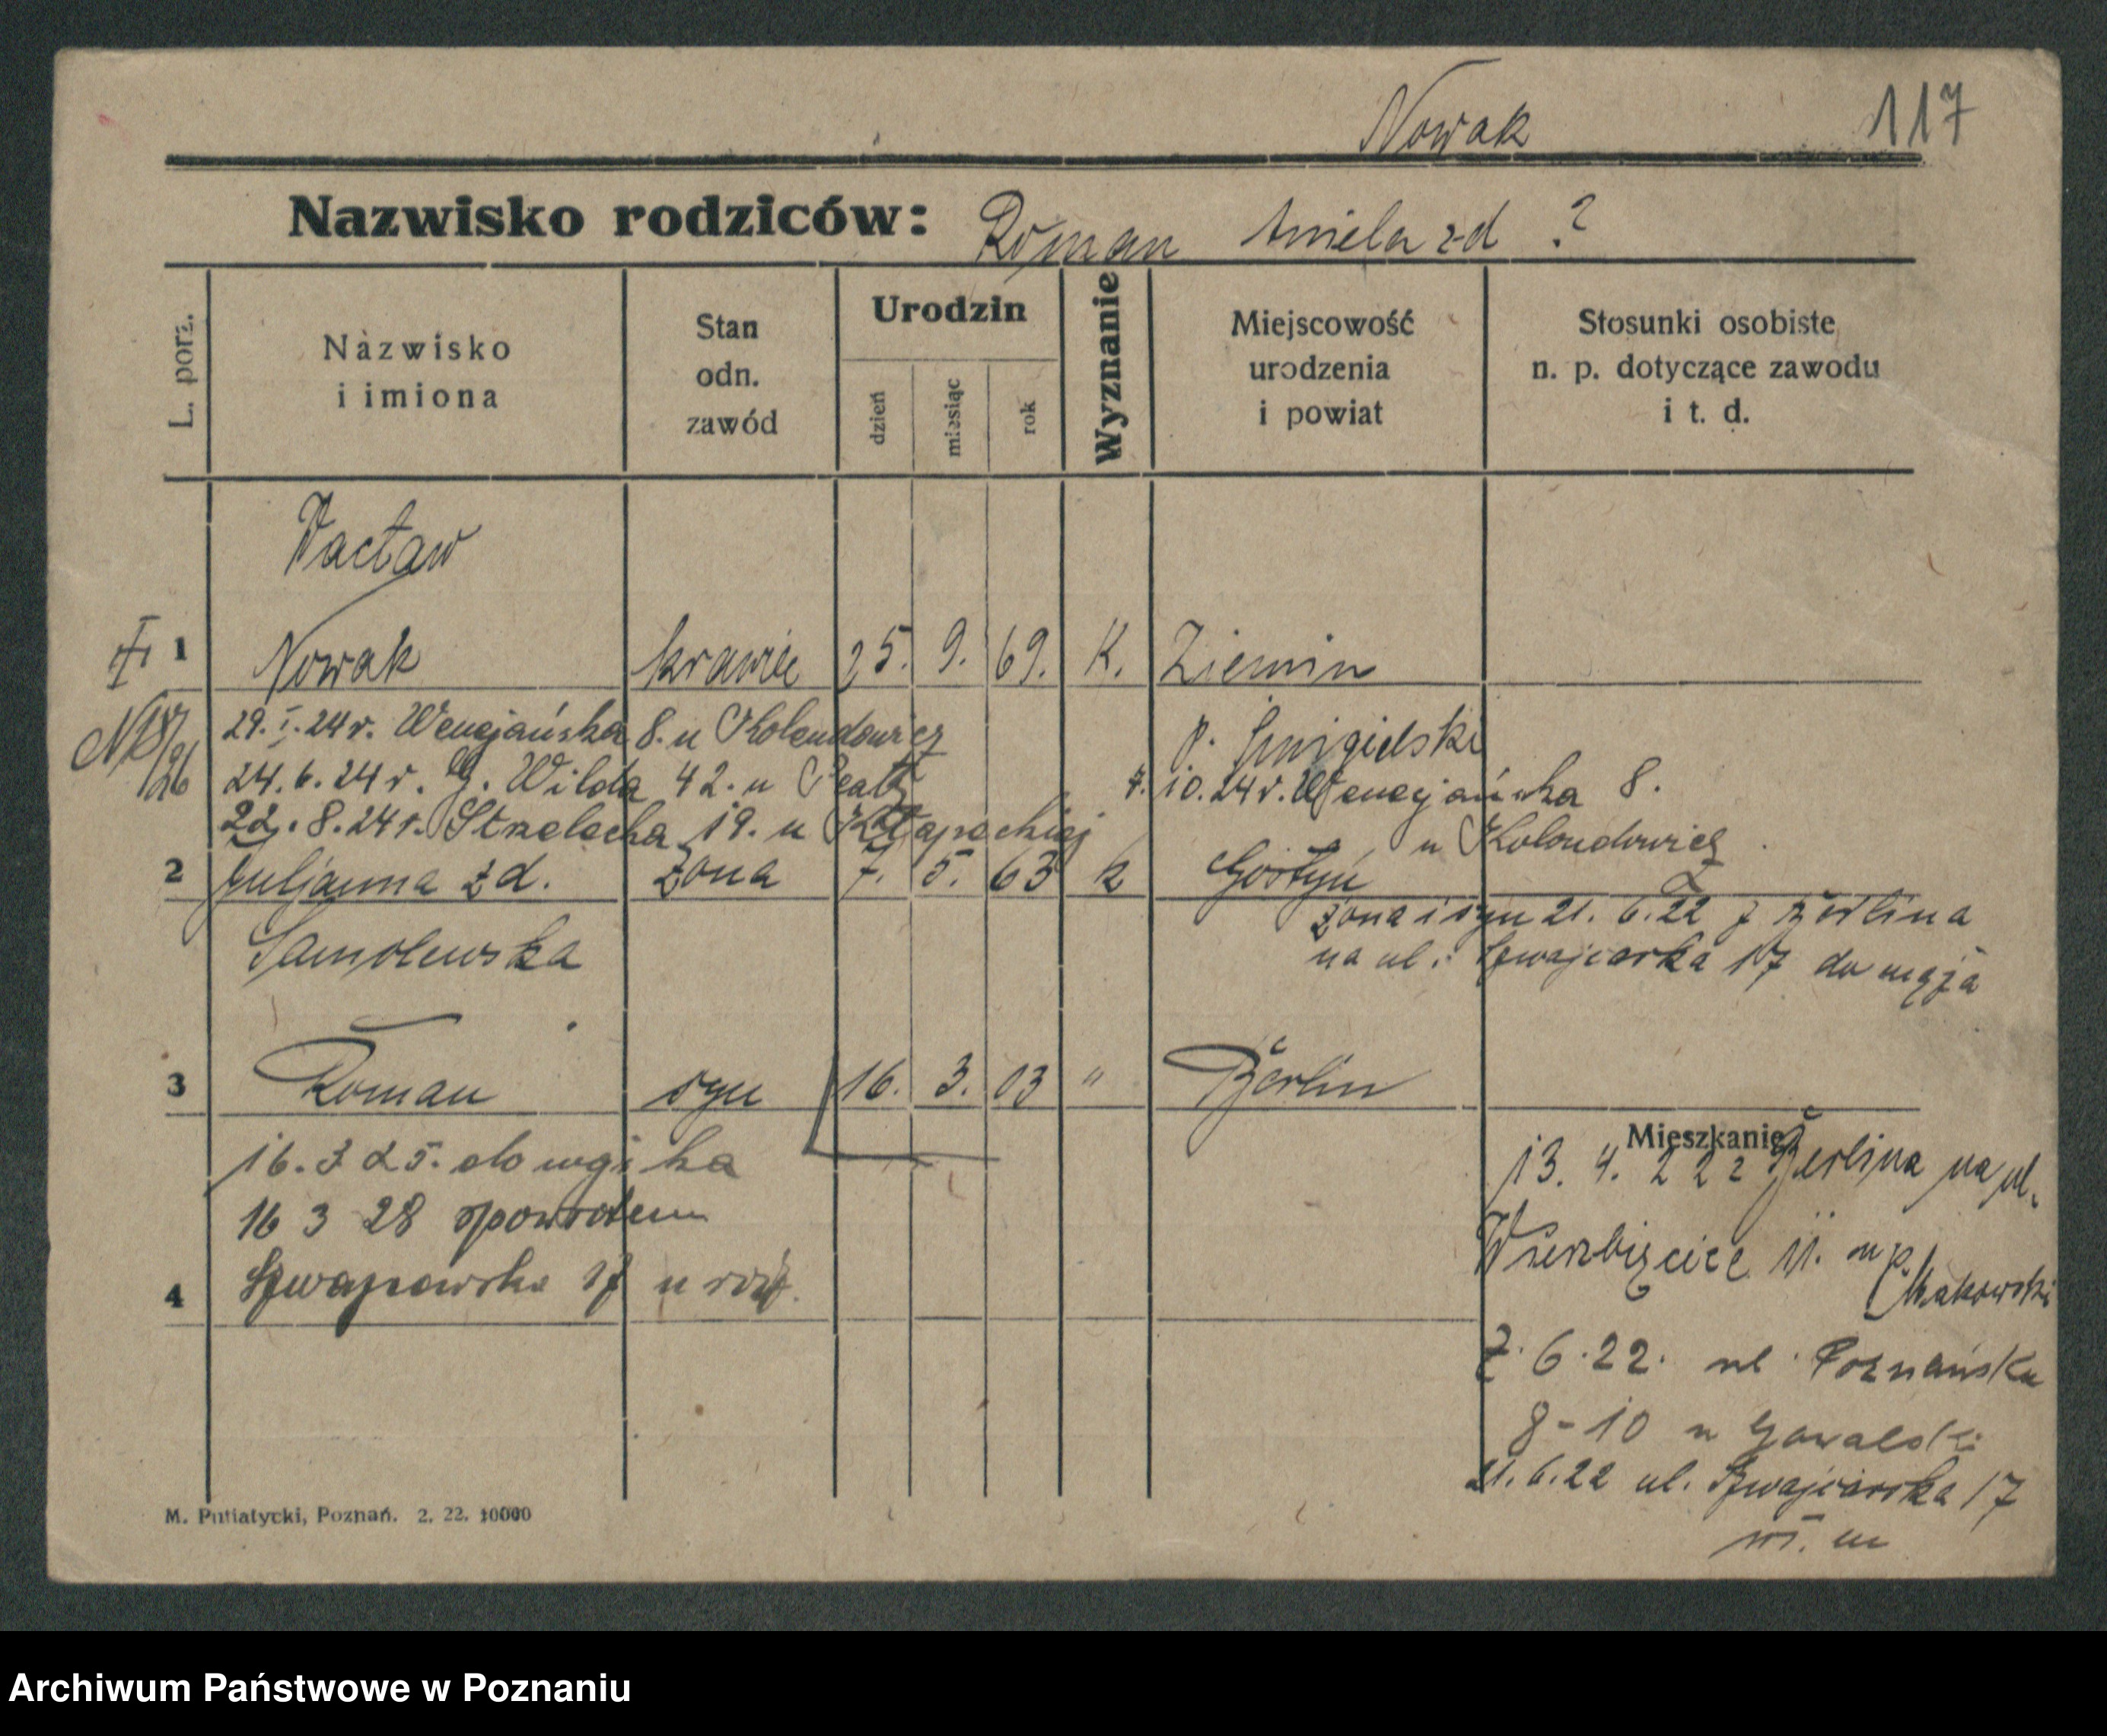 Nowak 117
Nazwisko rodziców: Roman Aniela z d ?
L. porz.
Nazwisko
i imiona
Stan
odn.
zawód
Urodzin
dzień
miesiąc
rok
Wyznanie
Miejscowość
urodzenia
i powiat
Stosunki osobiste
n. p. dotyczące zawodu
i t. d.
Wacław
1 Nowak krawiec 25. 9. 69. K. Ziemin
p. Śmigielski
29. I. 24 r. Wenecjańska 8. u Kolendowicz
24. 6. 24 r. G. Wilda 42. u
7. 10. 24 r. Wenecjańska 8.
22. 8. 24 r. Strzelecka 19. u
u Kolendowicz
2 Juljanna z d. żona 7. 5. 63 k Gostyń
Samolewska
żona i syn 21. 6. 22 z Berlina
na ul. Szwajcarska 17 do męża
3 Roman syn 16. 3. 03 " Berlin
16. 3 25. do wojska
16 3 28 spowrotem
4 Szwajcarska 17 u rodz.
Mieszkanie
13. 4. 22 z Berlina na ul.
Wierzbięcice 11. u p.
Makowski
7. 6. 22. ul. Poznańska
8-10 u
21. 6. 22 ul. Szwajcarska 17
wł. m
M. Putiatycki, Poznań. 2. 22. 10000
Archiwum Państwowe w Poznaniu